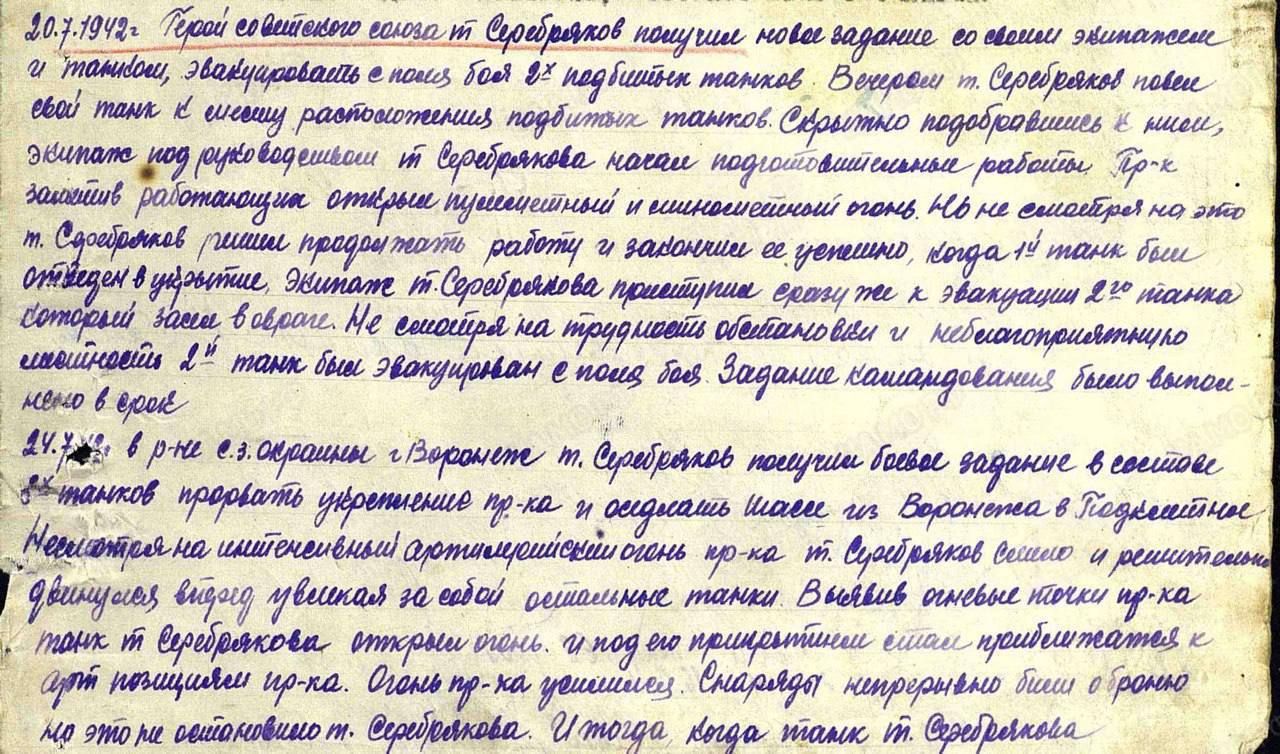 20.7.1942г Герой советского союза т Серебряков получил новое задание со своим экипажем
и танком, эвакуировать с поля боя 2х подбитых танков. Вечером т. Серебряков повел
свой танк к месту расположения подбитых танков. Скрытно подобравшись к ним,
экипаж под руководством т Серебрякова начал подготовительные работы. Пр-к
заметив работающих открыл пулеметный и минометный огонь. Но не смотря на это
т. Серебряков решил продолжать работу и закончил ее успешно, когда 1й танк был
отведен в укрытие, экипаж т. Серебрякова приступил сразу же к эвакуации 2го танка
который засел в овраге. Не смотря на трудность обстановки и неблагоприятную
местность 2й танк был эвакуирован с поля боя. Задание командования было выпол-
нено в срок
24.7 в р-не с.з. окраины г. Воронеж т. Серебряков получил боевое задание в составе
3х танков прорвать укрепление пр-ка и оседлать шассе из Воронежа в Подклетное
Несмотря на интенсивный артиллерийский огонь пр-ка т. Серебряков смело и решительно
двинулся вперед увлекая за собой остальные танки. Выявив огневые точки пр-ка
танк т Серебрякова открыл огонь. и под его прикрытием стал приближатся к
арт позициям пр-ка. Огонь пр-ка усилился. Снаряды непрерывно били о броню
но это не остановило т. Серебрякова. И тогда, когда танк т. Серебрякова